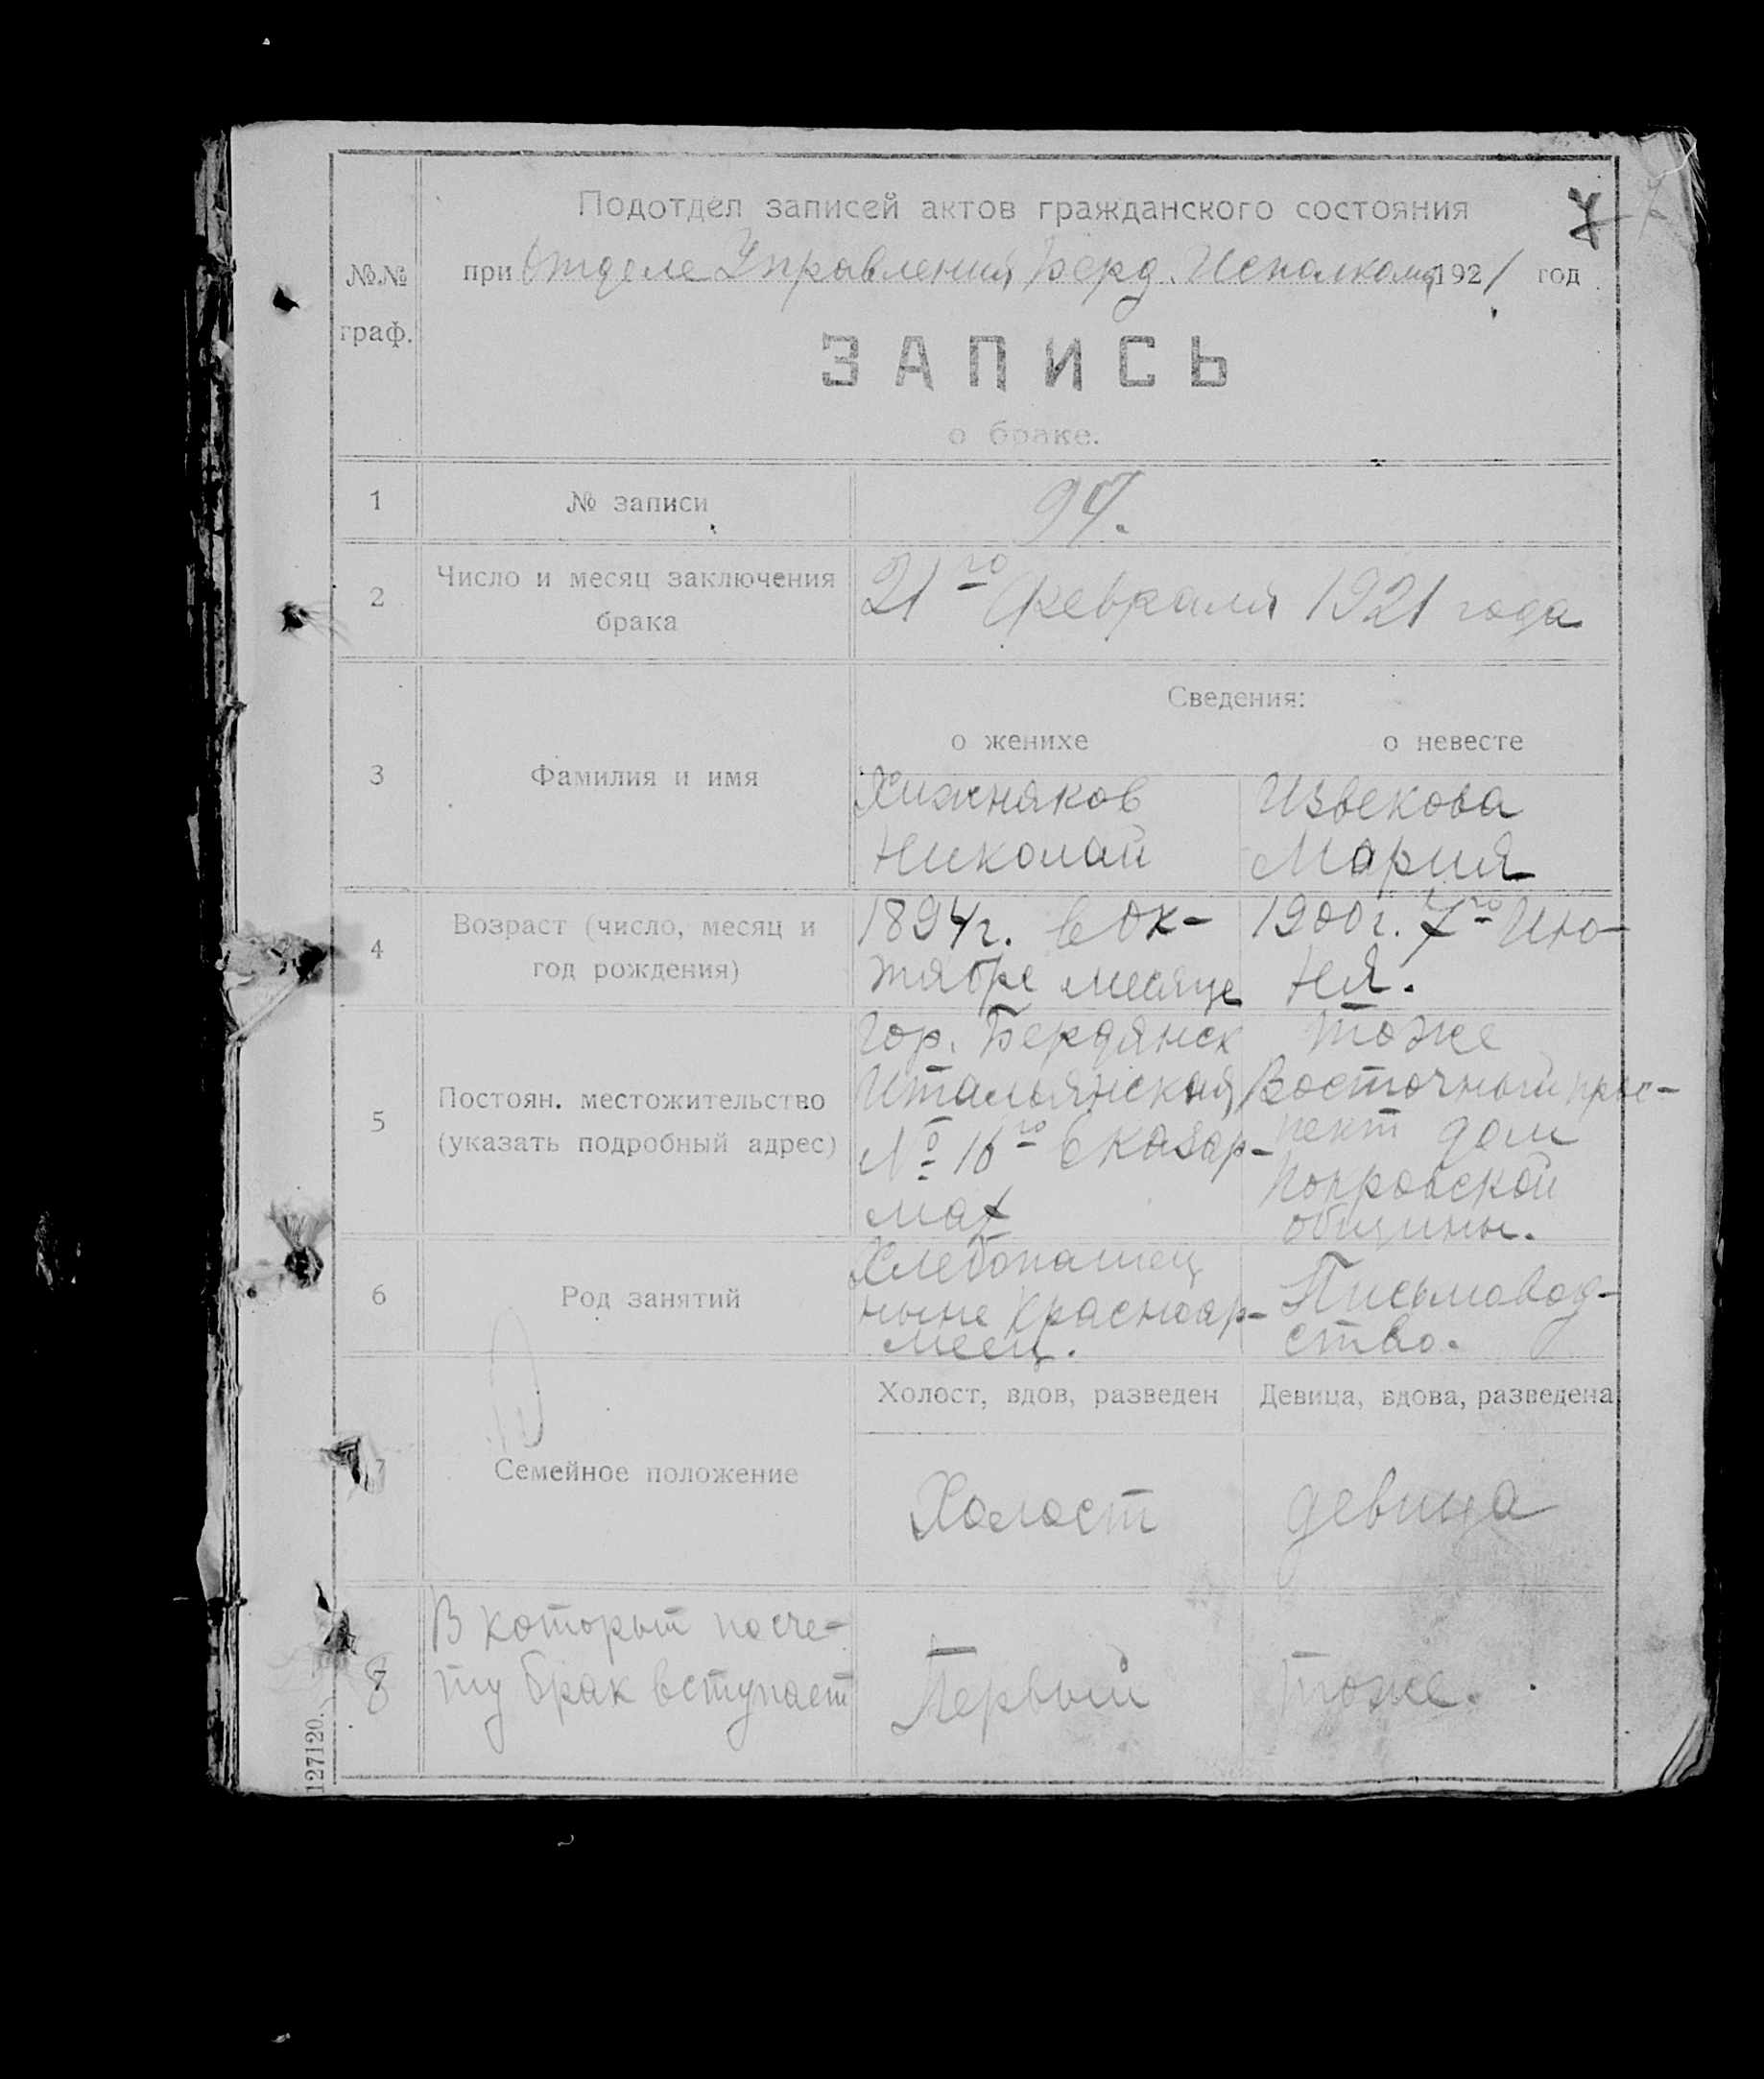 Подотдел записей актов гражданского состояния
при Отделе Управления Берд. Исполкома 1921 год
№№
граф.
ЗАПИСЬ
о браке.
1
№ записи
94.
2
Число и месяц заключения
брака
21го Февраля 1921 года
Сведения:
о женихе
о невесте
3
Фамилия и имя
Хижняков
Николай
Извекова
Мария
4
Возраст (число, месяц и
год рождения)
1894г. в ок-
тябре месяце
1900г. 7го Ию-
ня.
5
Постоян. местожительство
(указать подробный адрес)
Гор. Бердянск
Итальянская
№ 16го в казар-
мах
тоже
Восточный прос-
пект дом
Покровской
общины.
6
Род занятий
Хлебопашец
ныне Красноар-
меец.
Письмовод-
ство.
7
Семейное положение
Холост, вдов, разведен
Девица, вдова, разведена
Холост
девица
8
В которыт по сче-
ту брак вступает
Первый
тоже.
127120.